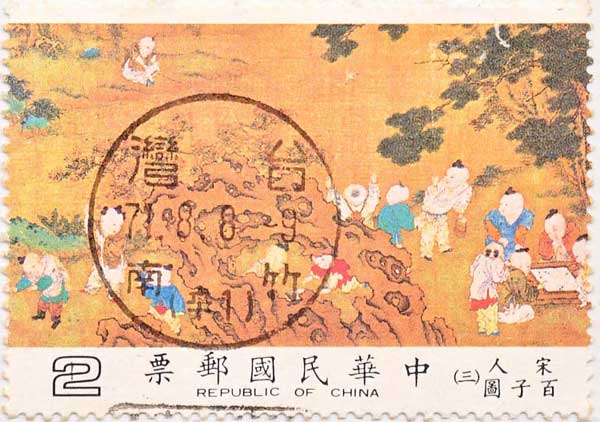 台灣
71.8.8.9
竹南
2
中華民國郵票
REPUBLIC OF CHINA
宋人百子圖
(三)